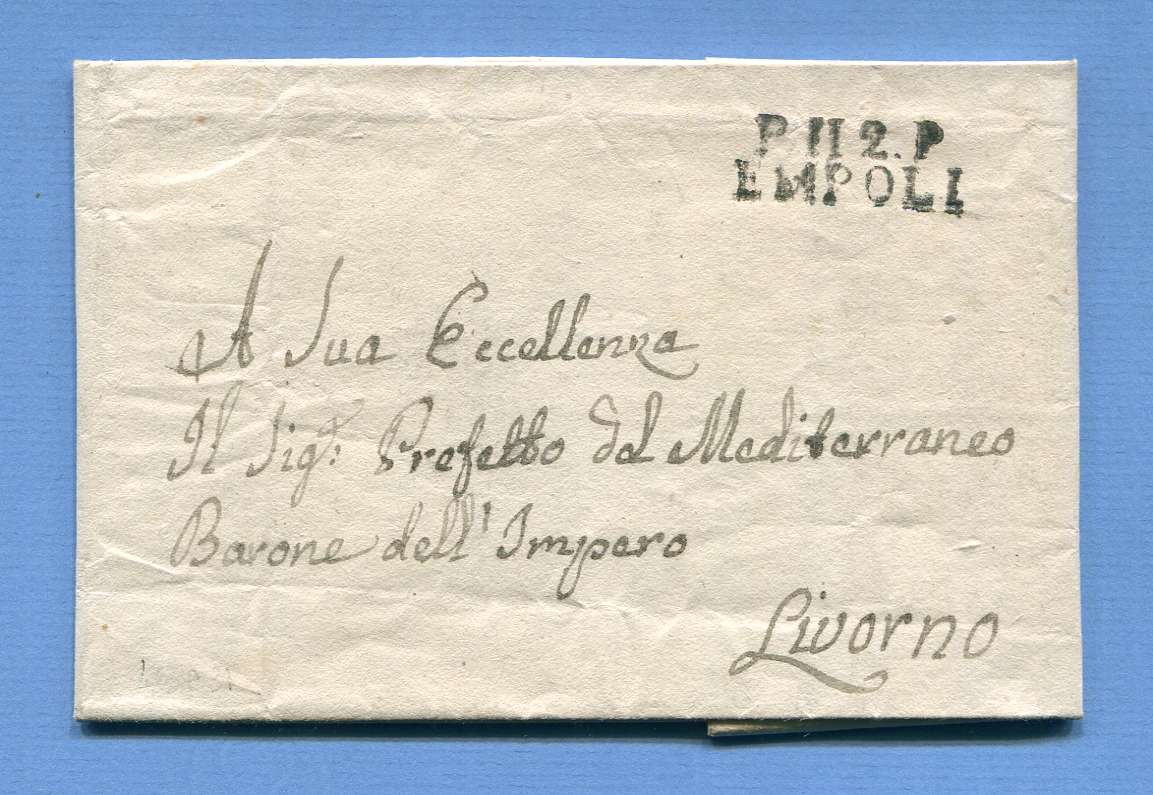 P.112.P
EMPOLI
A Sua Eccellenza
Il Sigr. Prefetto del Mediterraneo
Barone dell' Impero
Livorno